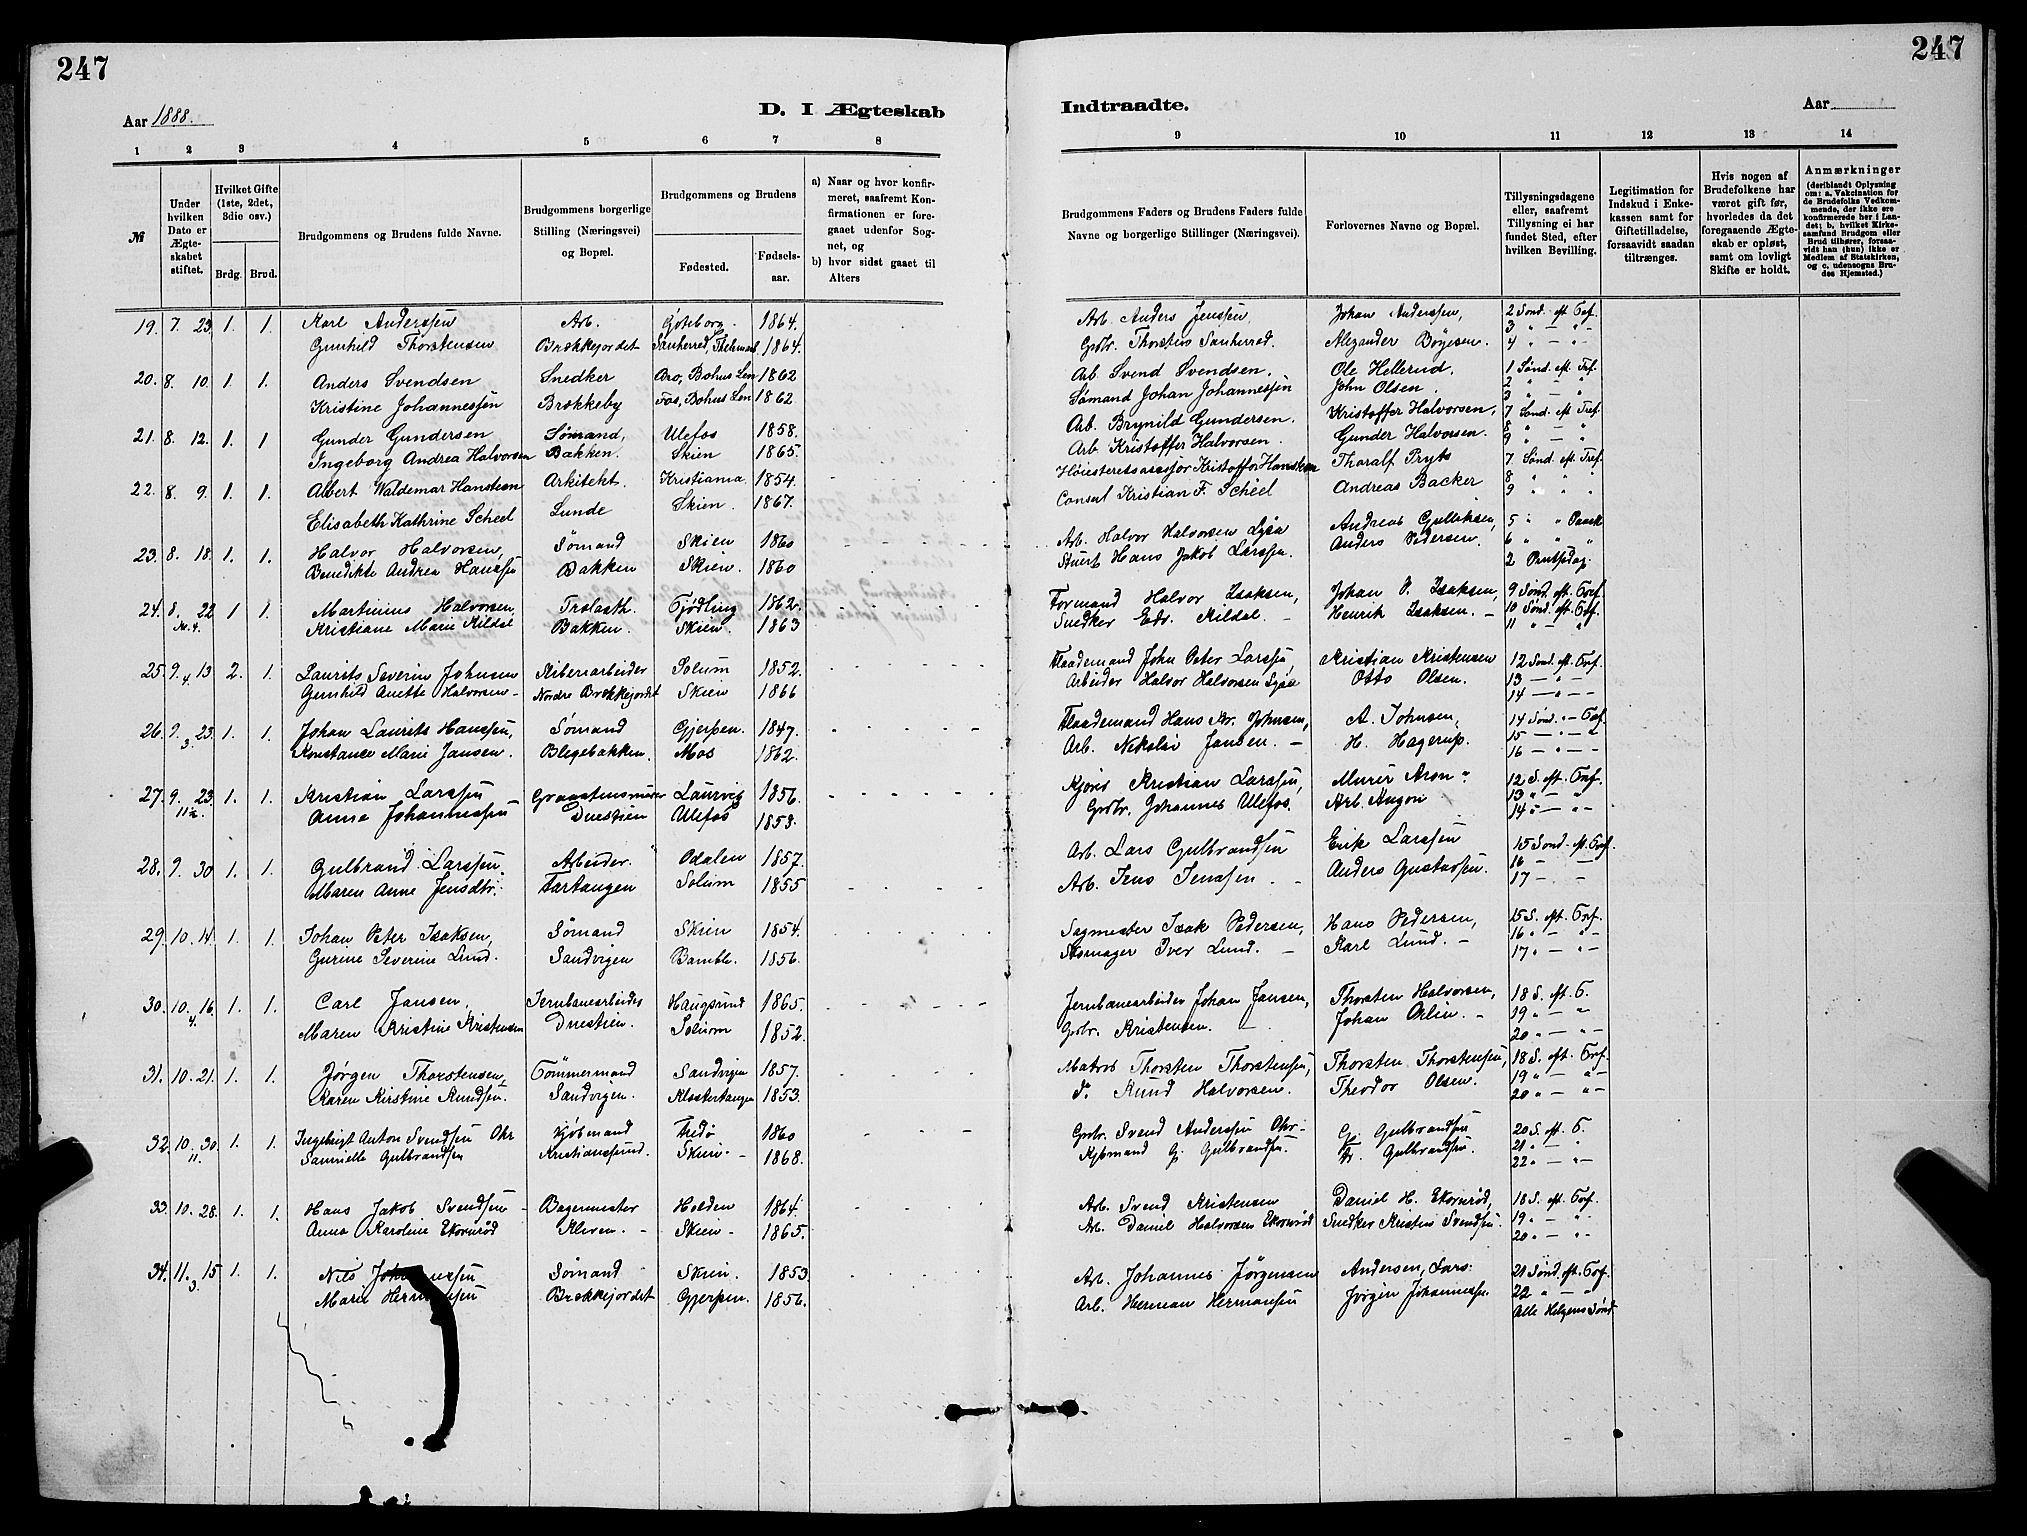 247
247
Aar 1888.
D. I Ægteskab
Indtraadte.
Aar
1 2 3 4 5 6 7 8
9 10 11 12 13 14
№
Under hvilken Dato er Ægteskabet stiftet.
Hvilket Gifte (1ste, 2det, 3die osv.)
Brdg. Brud.
Brudgommens og Brudens fulde Navne.
Brudgommens borgerlige Stilling (Næringsvei) og Bopæl.
Brudgommens og Brudens
Fødested.
Fødselsaar.
a) Naar og hvor konfirmeret, saafremt Konfirmationen er foregaaet udenfor Sognet, og
b) hvor sidst gaaet til Alters
Brudgommens Faders og Brudens Faders fulde Navne og borgerlige Stillinger (Næringsvei).
Forlovernes Navne og Bopæl.
Tillysningsdagene eller, saafremt Tillysning ei har fundet Sted, efter hvilken Bevilling.
Legitimation for Indskud i Enkekassen samt for Giftetilladelse, forsaavidt saadan tiltrænges.
Hvis nogen af Brudefolkene har været gift før, hvorledes da det foregaaende Ægteskab er opløst, samt om lovligt Skifte er holdt.
Anmærkninger
(deriblandt Oplysning om: a. Vakcination for de Brudefolks Vedkommende, der ikke ere konfirmerede her i Landet; b. hvilket Kirkesamfund Brudgom eller Brud tilhører, forsaavidt han (hun) ikke er Medlem af Statskirken, og c. udensogns Brudes Hjemsted.)
19. 7. 23. 1. 1. Karl Anderssen Arb. Göteborg. 1864. Arb. Anders Jenssen, Johan Anderssen, 2 Sönd. eft. Tref.
3 " — " -
Gunhild Thorstensen Brekkejordet Sanherred, Thelemark. 1864. Grdbr. Thorstein Sanherred. Alexander Bøyesen. 4 " — " -
20. 8. 10. 1. 1. Anders Svendsen Snedker Aro, Bohus Len 1862 Arb. Svend Svendsen. Ole Hellerud. 1 Sönd. eft Tref.
2 " — "
Kristine Johannessen Brekkeby Fos, Bohus Len 1862 Sømand Johan Johannessen John Olsen. 3 " — "
21. 8. 12. 1. 1 Gunder Gundersen Sømand, Ulefos 1858. Arb. Brynild Gundersen. Kristoffer Halvorsen, 7 Sönd. eft Tref.
8 " — "
Ingeborg Andrea Halvorsen Bakken. Skien 1865. Arb Kristoffer Halvorsen. Gunder Halvorsen. 9 " — "
22. 8. 9. 1. 1. Albert Waldemar Hansteen Arkitekt. Kristiania 1854. Høiesteretsassessor Kristoffer Hansteen Tharalf Pryts 7 Sönd. eft. Tref.
8 " " "
Elisabeth Kathrine Scheel Lunde Skien. 1867. Consul Kristian F. Scheel Andreas Backer 9 " " "
23. 8. 18. 1. 1. Halvor Halvorsen, Sømand Skien 1860 Arb. Halvor Halvorsen Lysa Andreas Gulliksen, 5 " " Paask
6 " " "
Benedikte Andrea Hanssen Bakken Skien. 1860 Stuert Hans Jakob Larssen. Anders Pedersen. 2 Pintsedag.
24. 8. 22 1 1. Martinius Halvorsen, Trælasth. Tjödling 1862. Formand Halvor Isaksen, Johan P. Isaksen, 9 Sönd. eft. Tref.
№ 4. 10 Sönd. eft. Tref.
Kristiane Marie Kildal Bakken. Skien. 1863 Snedker Edv. Kildal. - Henrik Isaksen. - 11 " — "
25. 9. 13. 2. 1. Laurits Severin Johnsen Skiberiarbeider Solum 1852. Flaademand John Peter Larssen, Kristian Kristensen 12 Sönd. eft. Tref.
4 13 — " —
Gunhild Anette Halvorsen - Nordre Brekkejordet Skien 1866 Arbeider Halvor Halvorsen Lysa Otto Olsen. 14 — " - -
26. 9. 23. 1. 1. Johan Laurits Hanssen, Sømand Gjerpen. 1847. Flaademand Hans Kr. Johnsen, A. Johnsen, 14 Sönd. " - Tref.
3 15 — " - "
Konstance Marie Jansen. Blegebakken. Mos 1862. Arb. Nikolai Jansen. - H. Hagerup. 16 — " - -
27. 9. 23. 1. 1. Kristian Larssen Graastensmurer Laurvig 1856. Kjøre Kristian Larssen, Murer Aron " 12 S. eft. Tref.
11½. 13 " — " -
Anne Johannessen Duestien Ulefos 1858. Grdbr. Johannes Ulefos. Arb. August 14 " - " -
28. 9. 30 1. 1. Gulbrand Larssen. Arbeider. Odalen 1857. Arb. Lars Gulbrandsen Erik Larssen 15 Sönd. eft. Tref.
16 — —
Maren Anne Jensdtr. Tartangen Solum 1855 Arb. Jens Jenssen. - Anders Gustavsen. 17 - . -
29. 10. 14. 1. 1. Johan Peter Isaksen, Sømand Skien 1854. Sagmester Isak Pedersen, Hans Pedersen, 15 S. eft. Tref.
16 " — " -
Gurine Severine Lund. Sandvigen Bamble. 1856. Skomager Iver Lund. - Karl Lund. - 17 " — " -
30. 10. 16. 1. 1. Carl Jansen, Jernbanearbeider Haugsund 1865. Jernbanearbeider Johan Jansen, Thorsten Halvorsen, 18 S. eft. T.
4. 19 " — "
Maren Kristine Kristensen Duestien. Solum 1852. Grbr. Kristensen. - Johan Ahlin. - 20 " — " -
31. 10. 21. 1. 1. Jörgen Thorstensen Tömmermand Sandvigen 1857. Matros Thorsten Thorstensen, Thorsten Thorstensen, 18 S. eft. Tref.
19 " — " -
Karen Kirstine Knudsen. Sandvigen. Klostertangen 1853. d. Knud Halvorsen. Theodor Olsen. 20 " — " -
32. 10. 30. 1. 1. Ingebrigt Anton Svendsen Ohr Kjöbmand Fredö 1860 Grbr. Svend Anderssen Ohr - G. Gulbrandsen 20 S. eft. T.
11. 21 " — " -
Samielle Gulbrandsen Kristianssund. Skien - 1868. Kjöbmand G. Gulbrandsen. Gulbrandsen. 22 " — " -
33. 10. 28. 1. 1. Hans Jakob Svendsen - Bagermester Holden 1864. Arb. Svend Kristensen Daniel H. Ekornrød, 18 S. eft. Tref.
19 " — " -
Anna Karoline Ekornrød Kleven. - Skien - 1865. Arb. Daniel Halvorsen Ekornrød Snedker Kristen Svendsen. 20 " — " -
34. 11. 15. 1. 1. Nils Johannessen Sømand Skien. 1853. Arb. Johannes Jörgensen Andersen, Lars. 21 Sönd. eft. Tref.
3. 22 " — " -
Marie Hermansen Brekkejordet Gjerpen. 1856. Arb. Herman Hermansen Jörgen Johannessen. Alle Helgens Sönd.